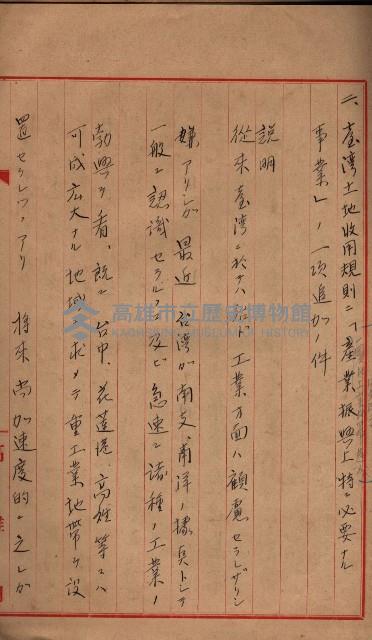 二、臺湾土地收用規則ニ「産業振興上特ニ必要ナル
事業」ノ一項追加ノ件
説明
從来臺湾ニ於テハ 工業方面ハ顧慮セラレザリシ
嫌アリシガ 最近台湾ガ南支、南洋ノ據点トシテ
一般ニ認識セラルヽニ及ビ急速ニ諸種ノ工業ノ
勃興ヲ看、既ニ台中、花蓮港、高雄等ニハ
可成広大ナル地域ヲ求メテ重工業地帯ヲ設
置セラレツヽアリ 将来尚加速度的ニ之レガ
高雄市立歷史博物館
KAOHSIUNG MUSEUM OF HISTORY
高雄